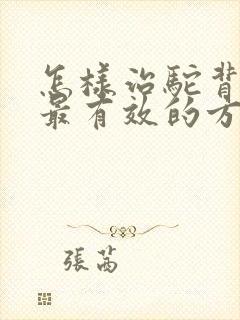 怎樣治駝背
最有效的方
張茜